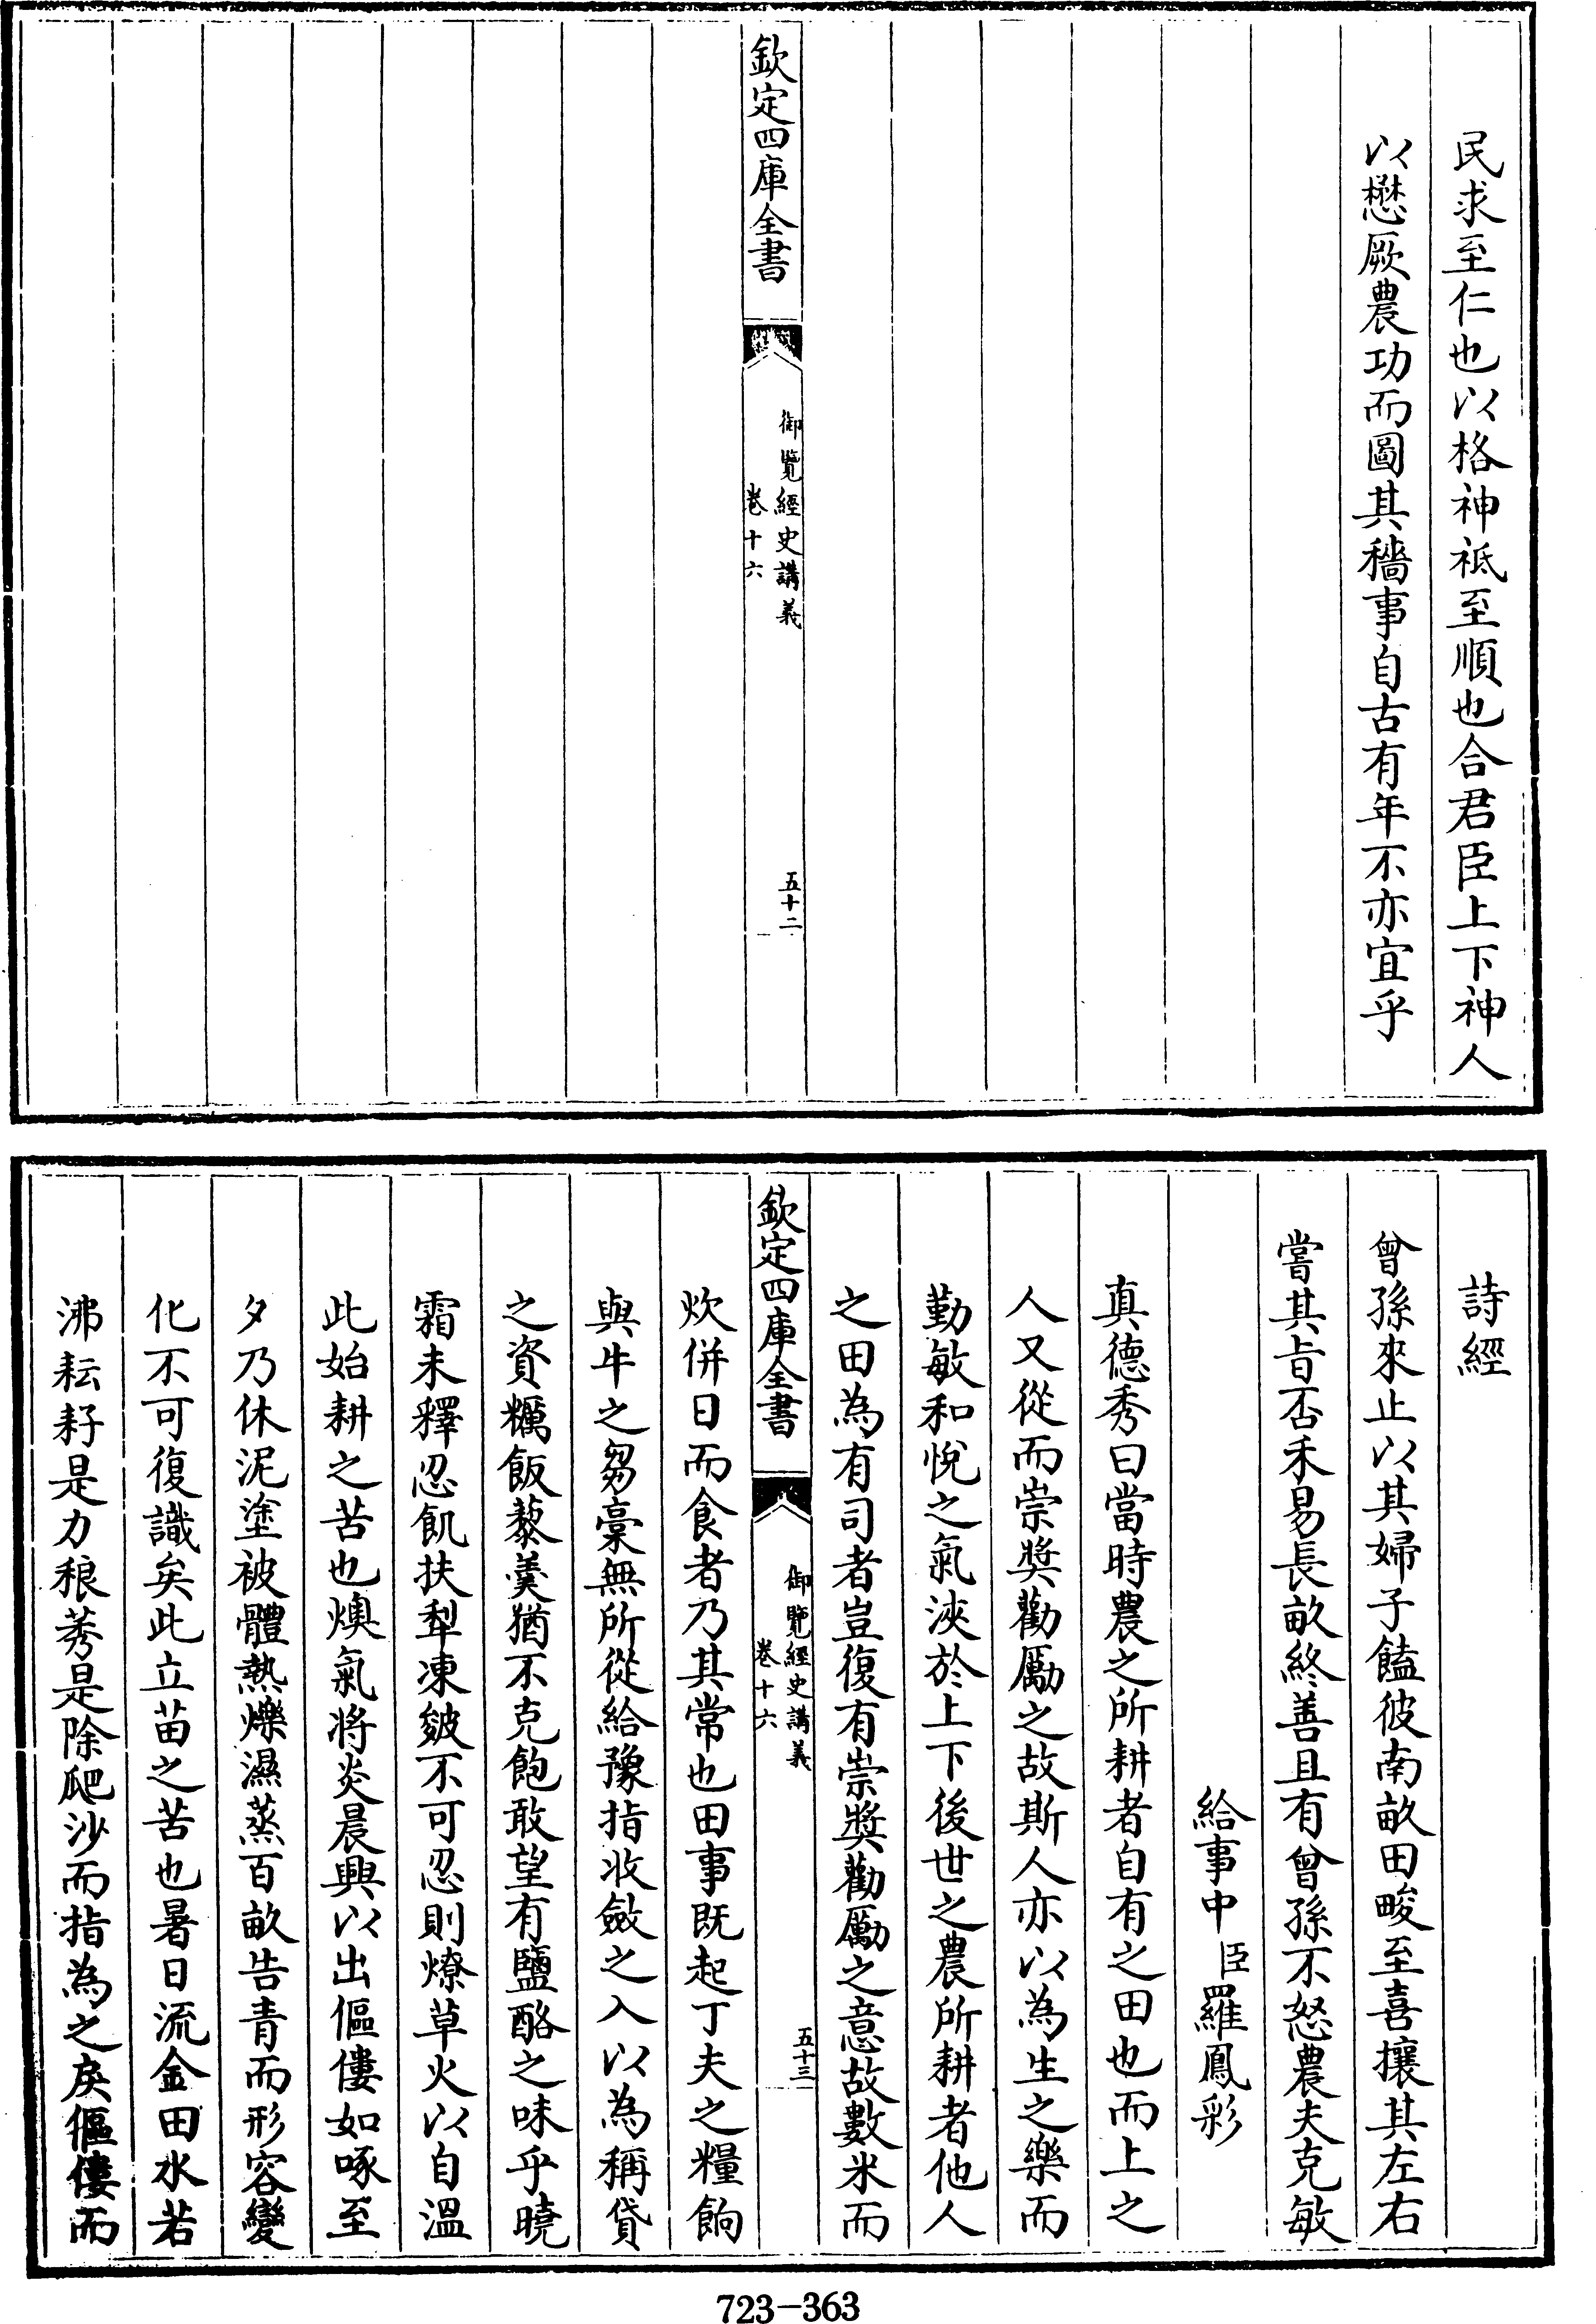 民求至仁也以格神祗至順也合君臣上下神人
以懋厥農功而圖其穡事自古有年不亦宜乎
欽定四庫全書
御覽經史講義
卷十六
五十二
詩經
曾孫來止以其婦子饁彼南畝田畯至喜攘其左右
嘗其旨否禾易長畝終善且有曾孫不怒農夫克敏
給事中臣羅鳳彩
真德秀曰當時農之所耕者自有之田也而上之
人又從而崇奬勸勵之故斯人亦以為生之樂而
勤敏和悅之氣浹於上下後世之農所耕者他人
之田為有司者豈復有崇奬勸勵之意故數米而
欽定四庫全書
御覽經史講義
卷十六
五十三
炊併日而食者乃其常也田事既起丁夫之糧餉
與牛之芻槀無所從給豫指收斂之入以為稱貸
之資糲飯藜羹猶不克飽敢望有鹽酪之味乎曉
霜未釋忍飢扶犁凍皴不可忍則燎草火以自溫
此始耕之苦也燠氣將炎晨興以出傴僂如啄至
夕乃休泥塗被體熱爍濕蒸百畝告青而形容變
化不可復識矣此立苗之苦也暑日流金田水若
沸耘耔是力稂莠是除爬沙而指為之戾傴僂而
723-363